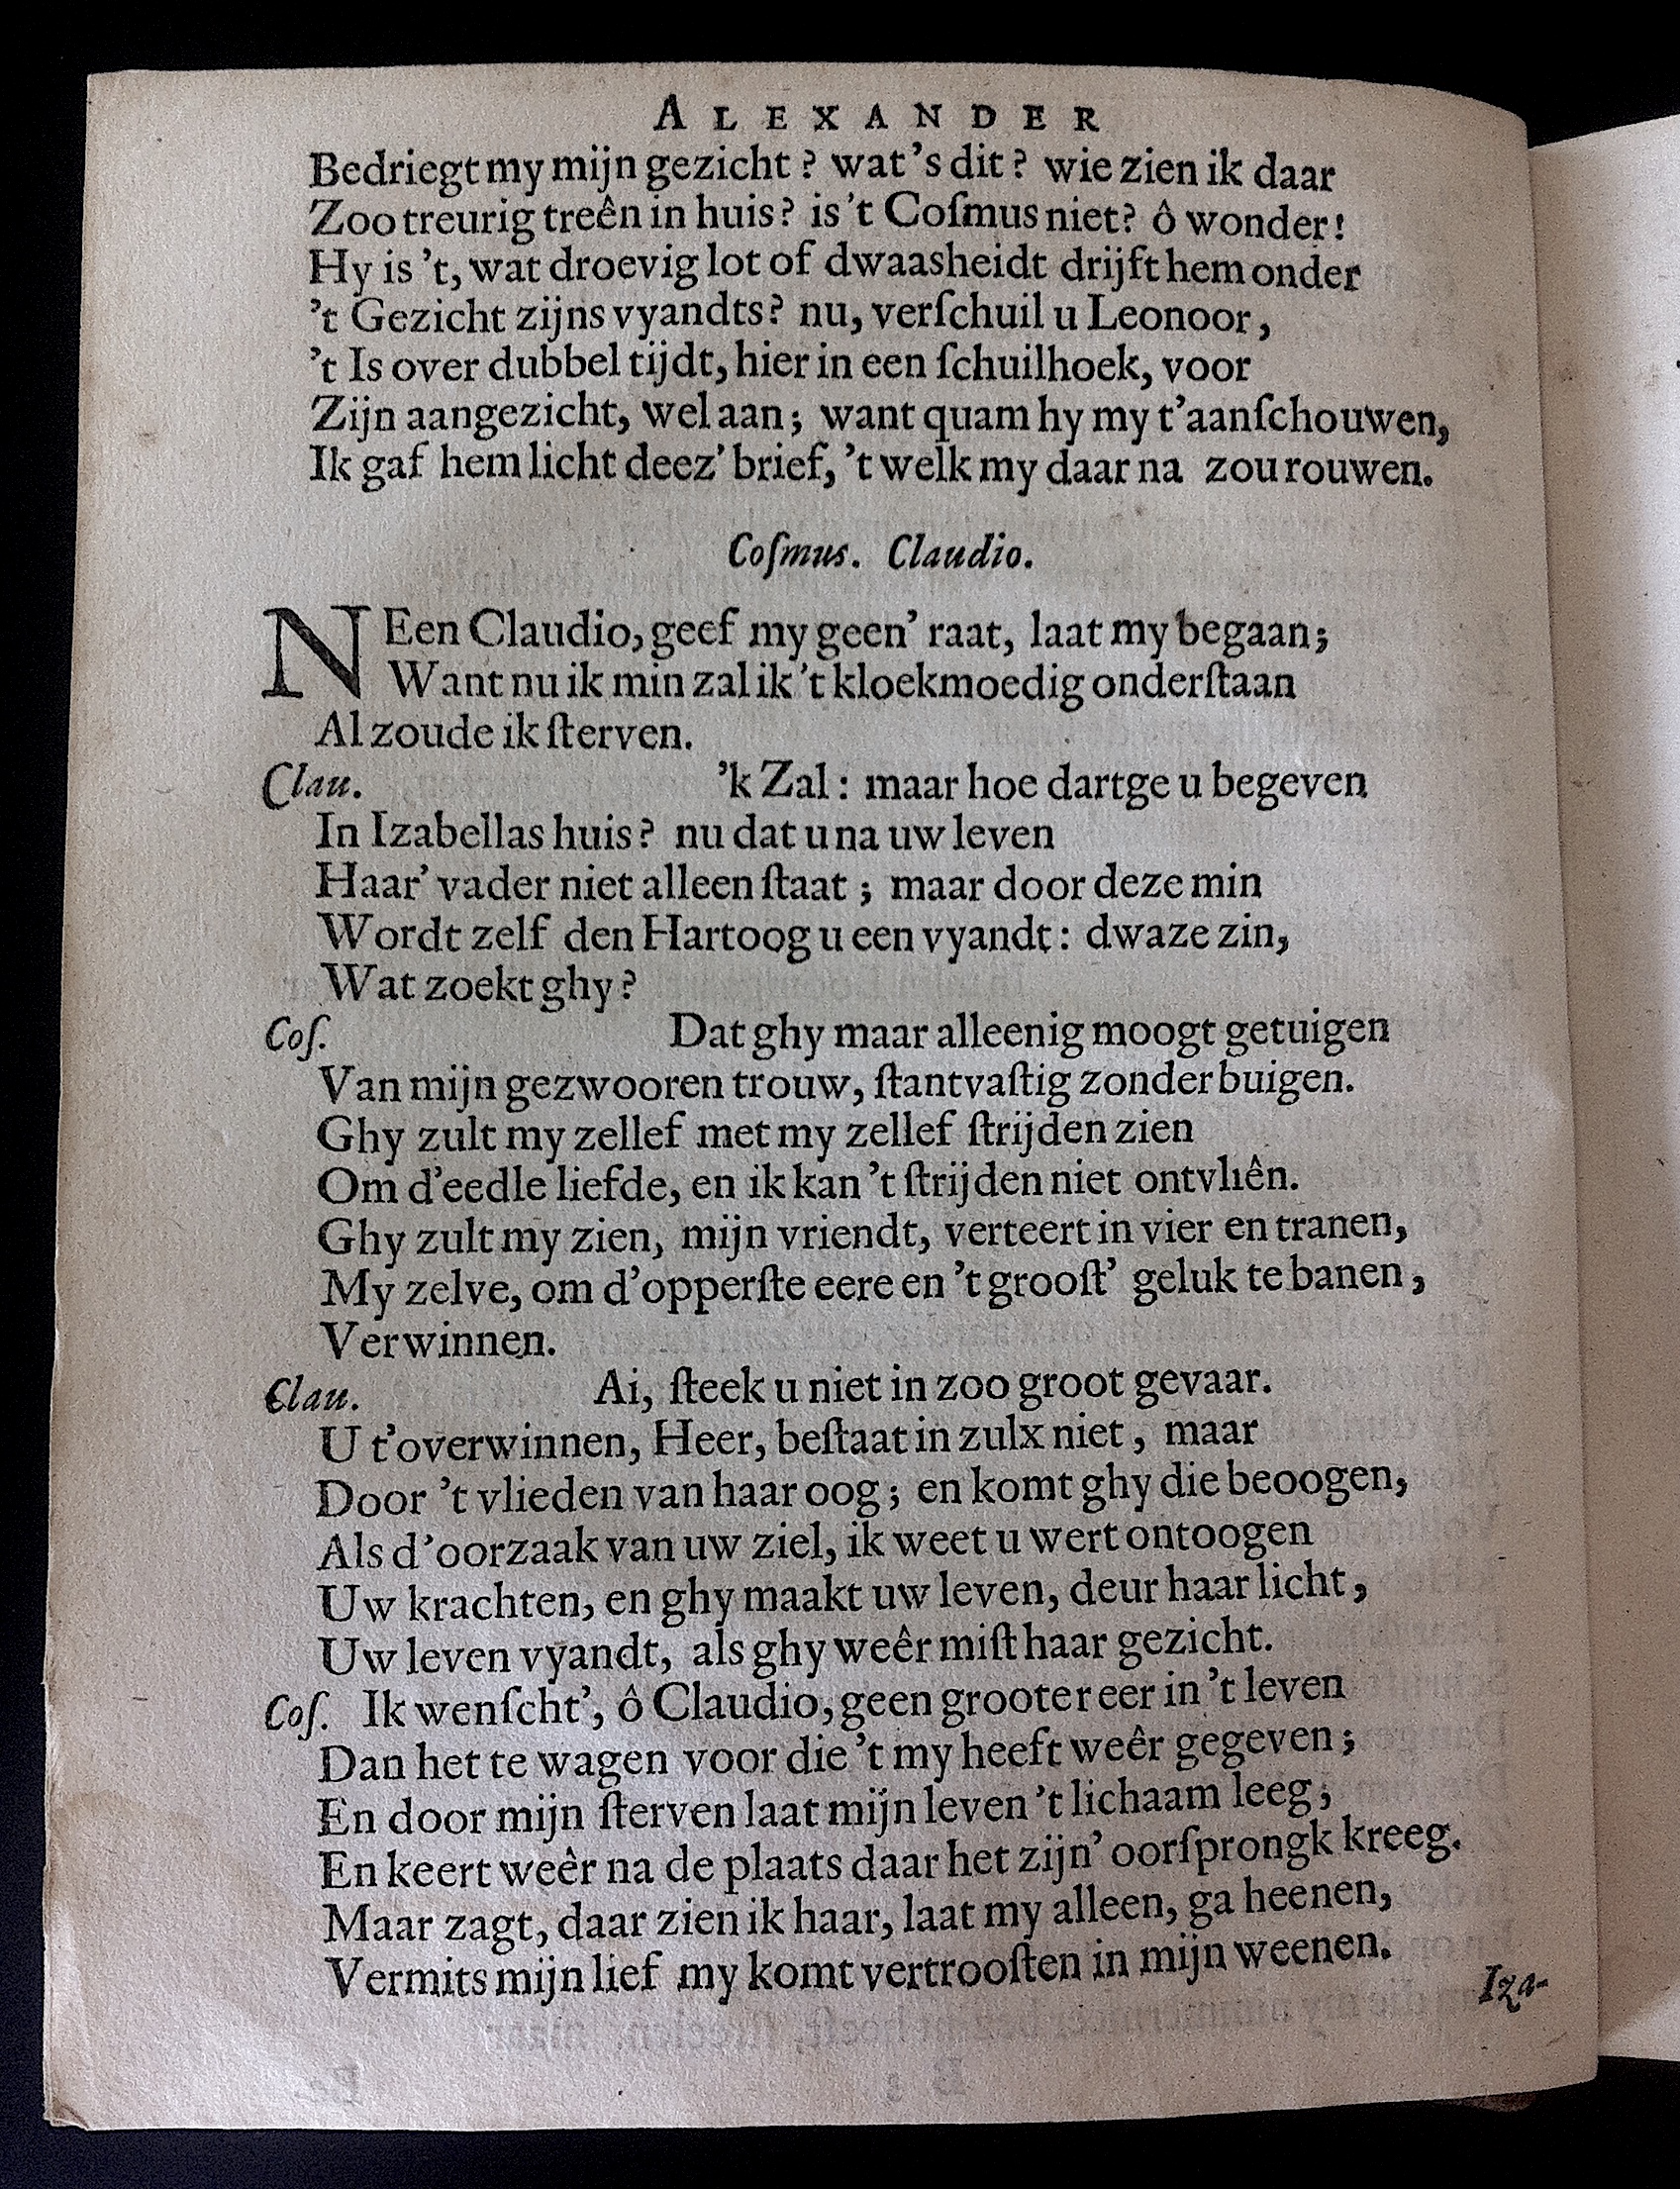 ALEXANDER
Bedriegt my mijn gezicht? wat's dit? wie zien ik daar
Zoo treurig treên in huis? is 't Coſmus niet? ô wonder!
Hy is 't, wat droevig lot of dwaasheidt drijft hem onder
't Gezicht zijns vyandts? nu, verſchuil u Leonoor,
't Is over dubbel tijdt, hier in een ſchuilhoek, voor
Zijn aangezicht, wel aan; want quam hy my t'aanſchouwen,
Ik gaf hem licht deez' brief, 't welk my daar na zou rouwen.
Coſmus. Claudio.
NEen Claudio, geef my geen' raat, laat my begaan;
Want nu ik min zal ik 't kloekmoedig onderſtaan
Al zoude ik ſterven.
Clau. 'k Zal: maar hoe dartge u begeven
In Izabellas huis? nu dat u na uw leven
Haar' vader niet alleen ſtaat; maar door deze min
Wordt zelf den Hartoog u een vyandt: dwaze zin,
Wat zoekt ghy?
Coſ. Dat ghy maar alleenig moogt getuigen
Van mijn gezwooren trouw, ſtantvaſtig zonder buigen.
Ghy zult my zellef met my zellef ſtrijden zien
Om d'eedle liefde, en ik kan 't ſtrijden niet ontvliên.
Ghy zult my zien, mijn vriendt, verteert in vier en tranen,
My zelve, om d'opperſte eere en 't grooſt' geluk te banen,
Verwinnen.
Clau. Ai, ſteek u niet in zoo groot gevaar.
U t'overwinnen, Heer, beſtaat in zulx niet, maar
Door 't vlieden van haar oog; en komt ghy die beoogen,
Als d'oorzaak van uw ziel, ik weet u wert ontoogen
Uw krachten, en ghy maakt uw leven, deur haar licht,
Uw leven vyandt, als ghy weêr miſt haar gezicht.
Coſ. Ik wenſcht', ô Claudio, geen grooter eer in 't leven
Dan het te wagen voor die 't my heeft weêr gegeven;
En door mijn ſterven laat mijn leven 't lichaam leeg;
En keert weêr na de plaats daar het zijn' oorſprongk kreeg.
Maar zagt, daar zien ik haar, laat my alleen, ga heenen,
Vermits mijn lief my komt vertrooſten in mijn weenen.
Iza-